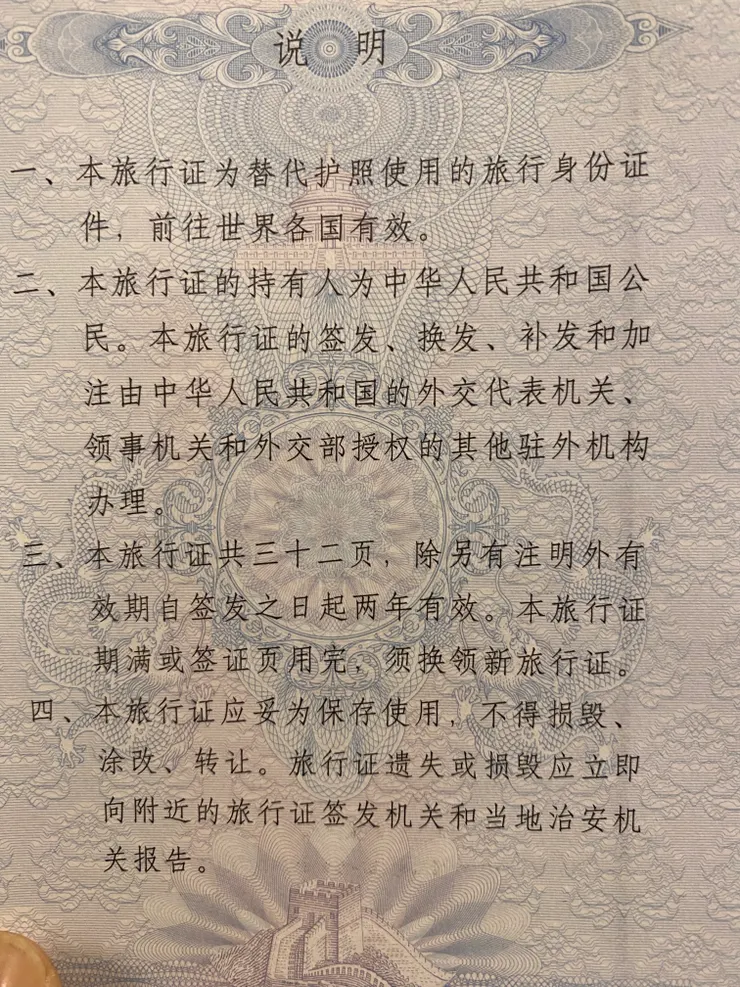 说明
一、本旅行证为替代护照使用的旅行身份证
件，前往世界各国有效。
二、本旅行证的持有人为中华人民共和国公
民。本旅行证的签发、换发、补发和加
注由中华人民共和国的外交代表机关、
领事机关和外交部授权的其他驻外机构
办理。
三、本旅行证共三十二页，除另有注明外有
效期自签发之日起两年有效。本旅行证
期满或签证页用完，须换领新旅行证。
四、本旅行证应妥为保存使用，不得损毁、
涂改、转让。旅行证遗失或损毁应立即
向附近的旅行证签发机关和当地治安机
关报告。